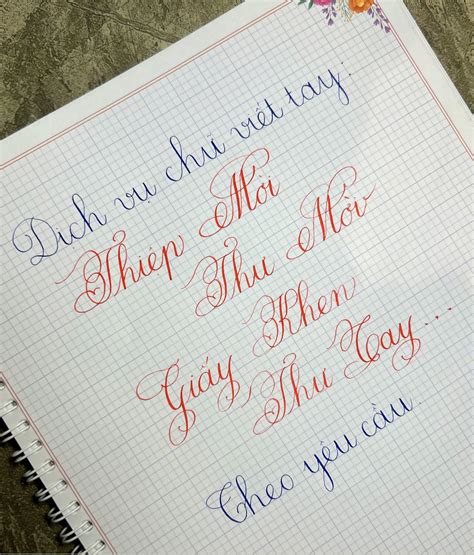 Dịch vụ chữ viết tay:
Thiệp Mời
Thư Mời
Giấy Khen
Thư Tay...
Theo yêu cầu.